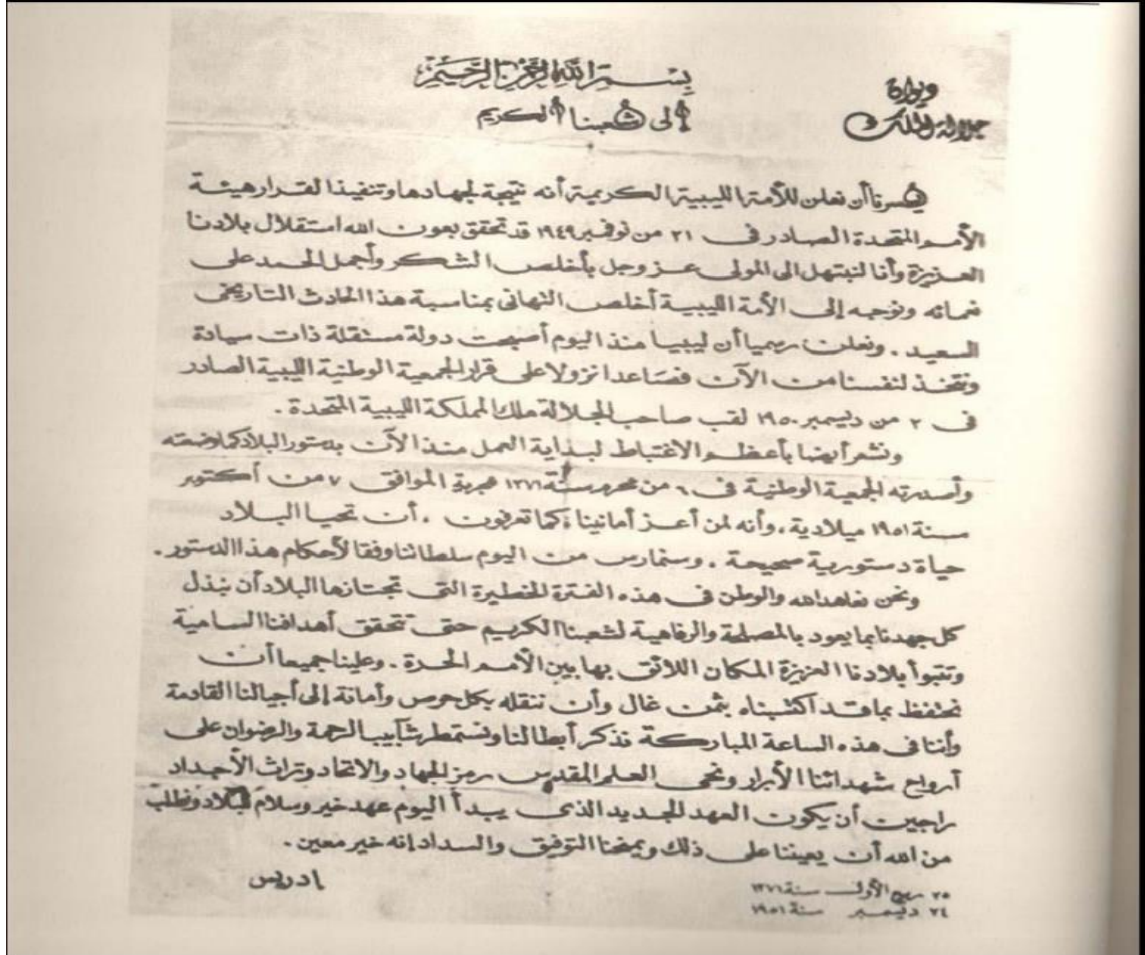 بسم الله الرحمن الرحيم
ديوان
جلالة الملك
إلى شعبنا الكريم
يسرنا أن نعلن للأمة الليبية الكريمة أنه نتيجة لجهادها وتنفيذا لقرار هيئة
الأمم المتحدة الصادر في ٢١ من نوفمبر ١٩٤٩ قد تحقق بعون الله استقلال بلادنا
العزيزة وأنا لنبتهل الى المولى عز وجل بأخلص الشكر وأجمل الحمد على
نعمائه ونوجه إلى الأمة الليبية أخلص التهاني بمناسبة هذا الحادث التاريخي
السعيد . ونعلن رسميا أن ليبيا منذ اليوم أصبحت دولة مستقلة ذات سيادة
ونتخذ لنفسنا من الآن فصاعدا نزولا على قرار الجمعية الوطنية الليبية الصادر
في ٢ من ديسمبر ١٩٥٠ لقب صاحب الجلالة ملك المملكة الليبية المتحدة .
ونشعر أيضا بأعظم الاغتباط لبداية العمل منذ الآن بدستور البلاد كما وضعته
وأصدرته الجمعية الوطنية في ٦ من محرم سنة ١٣٧١ هجرية الموافق ٧ من أكتوبر
سنة ١٩٥١ ميلادية ، وأنه لمن أعز أمانينا ، كما تعرفون ، أن تحيا البلاد
حياة دستورية صحيحة . وسنمارس من اليوم سلطاتنا وفقا لأحكام هذا الدستور .
ونحن نعاهد الله والوطن في هذه الفترة الخطيرة التي تجتازها البلاد أن نبذل
كل جهدنا بما يعود بالمصلحة والرفاهية لشعبنا الكريم حتى تتحقق أهدافنا السامية
وتتبوأ بلادنا العزيزة المكان اللائق بها بين الأمم الحرة . وعلينا جميعا أن
نحتفظ بما قد اكتسبناه بثمن غال وأن ننقله بكل حرص وأمانة إلى أجيالنا القادمة
وأننا في هذه الساعة المباركة نذكر أبطالنا ونستمطر شآبيب الرحمة والرضوان على
أرواح شهدائنا الأبرار ونحيى العلم المقدس رمز الجهاد والاتحاد وتراث الأجداد
راجين أن يكون العهد الجديد الذى يبدأ اليوم عهد خير وسلام للبلاد ونطلب
من الله أن يعيننا على ذلك ويمنحنا التوفيق والسداد إنه خير معين .
ادريس
٢٥ ربيع الأول سنة ١٣٧١
٢٤ ديسمبر سنة ١٩٥١